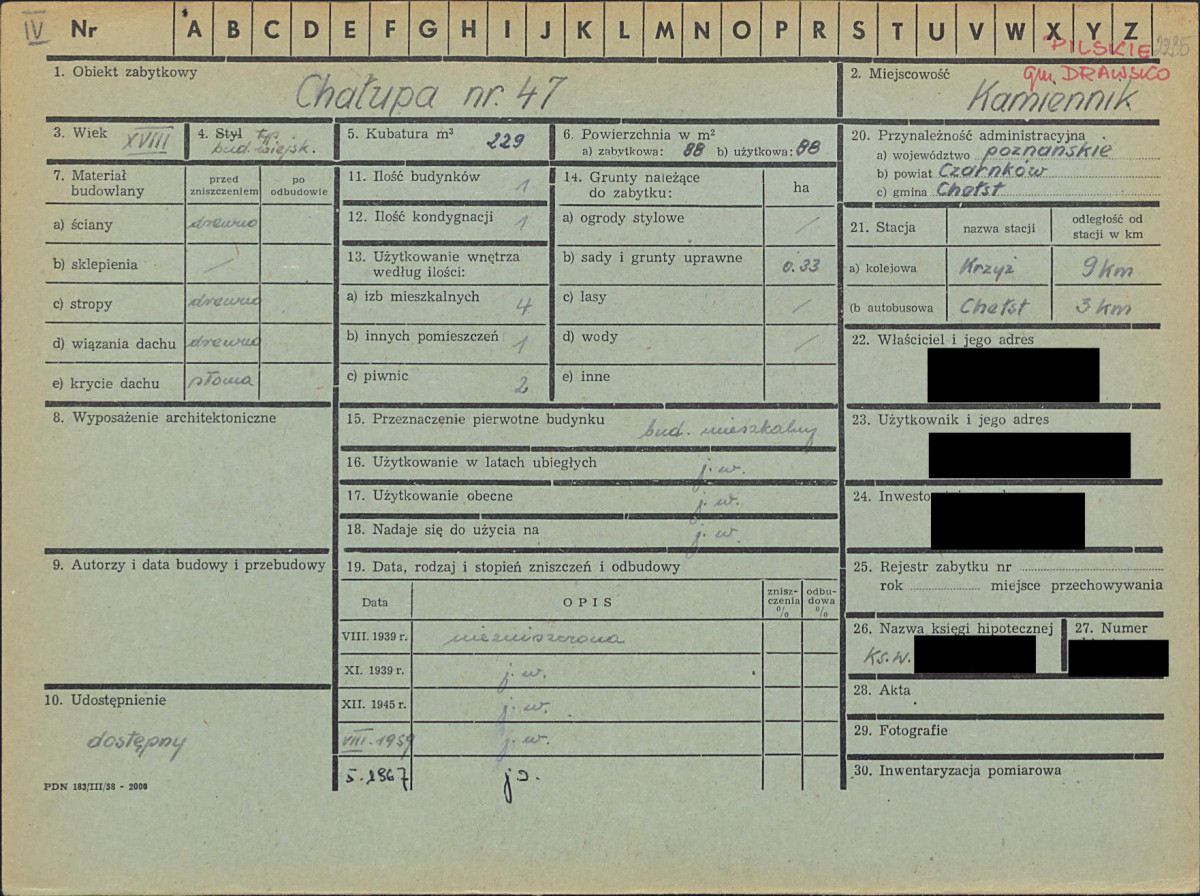 IV Nr A B C D E F G H I J K L M N O P R S T U V W X Y Z
PILSKIE 2235
gm. DRAWSKO
1. Obiekt zabytkowy
Chałupa nr. 47
2. Miejscowość
Kamiennik
3. Wiek XVIII
4. Styl typ
bud. wiejsk.
5. Kubatura m³ 229
6. Powierzchnia w m²
a) zabytkowa: 88 b) użytkowa: 88
7. Materiał budowlany
przed zniszczeniem
po odbudowie
a) ściany drewno
b) sklepienia /
c) stropy drewno
d) wiązania dachu drewno
e) krycie dachu słoma
8. Wyposażenie architektoniczne
9. Autorzy i data budowy i przebudowy
10. Udostępnienie
dostępny
PDN 182/III/58 - 2000
11. Ilość budynków 1
12. Ilość kondygnacji 1
13. Użytkowanie wnętrza
według ilości:
a) izb mieszkalnych 4
b) innych pomieszczeń 1
c) piwnic 2
14. Grunty należące
do zabytku: ha
a) ogrody stylowe /
b) sady i grunty uprawne 0.33
c) lasy /
d) wody /
e) inne
15. Przeznaczenie pierwotne budynku bud. mieszkalny
16. Użytkowanie w latach ubiegłych j. w.
17. Użytkowanie obecne j. w.
18. Nadaje się do użycia na j. w.
19. Data, rodzaj i stopień zniszczeń i odbudowy
Data OPIS znisz-czenia % odbu-dowa %
VIII. 1939 r. niezniszczona
XI. 1939 r. j. w.
XII. 1945 r. j. w.
VIII. 1959 j. w.
5. 1967 j.
20. Przynależność administracyjna
a) województwo poznańskie
b) powiat Czarnków
c) gmina Chełst
21. Stacja nazwa stacji odległość od stacji w km
a) kolejowa Krzyż 9 km
(b autobusowa Chełst 3 km
22. Właściciel i jego adres
23. Użytkownik i jego adres
24. Inwesto
25. Rejestr zabytku nr
rok miejsce przechowywania
26. Nazwa księgi hipotecznej
Ks. W.
27. Numer
28. Akta
29. Fotografie
30. Inwentaryzacja pomiarowa